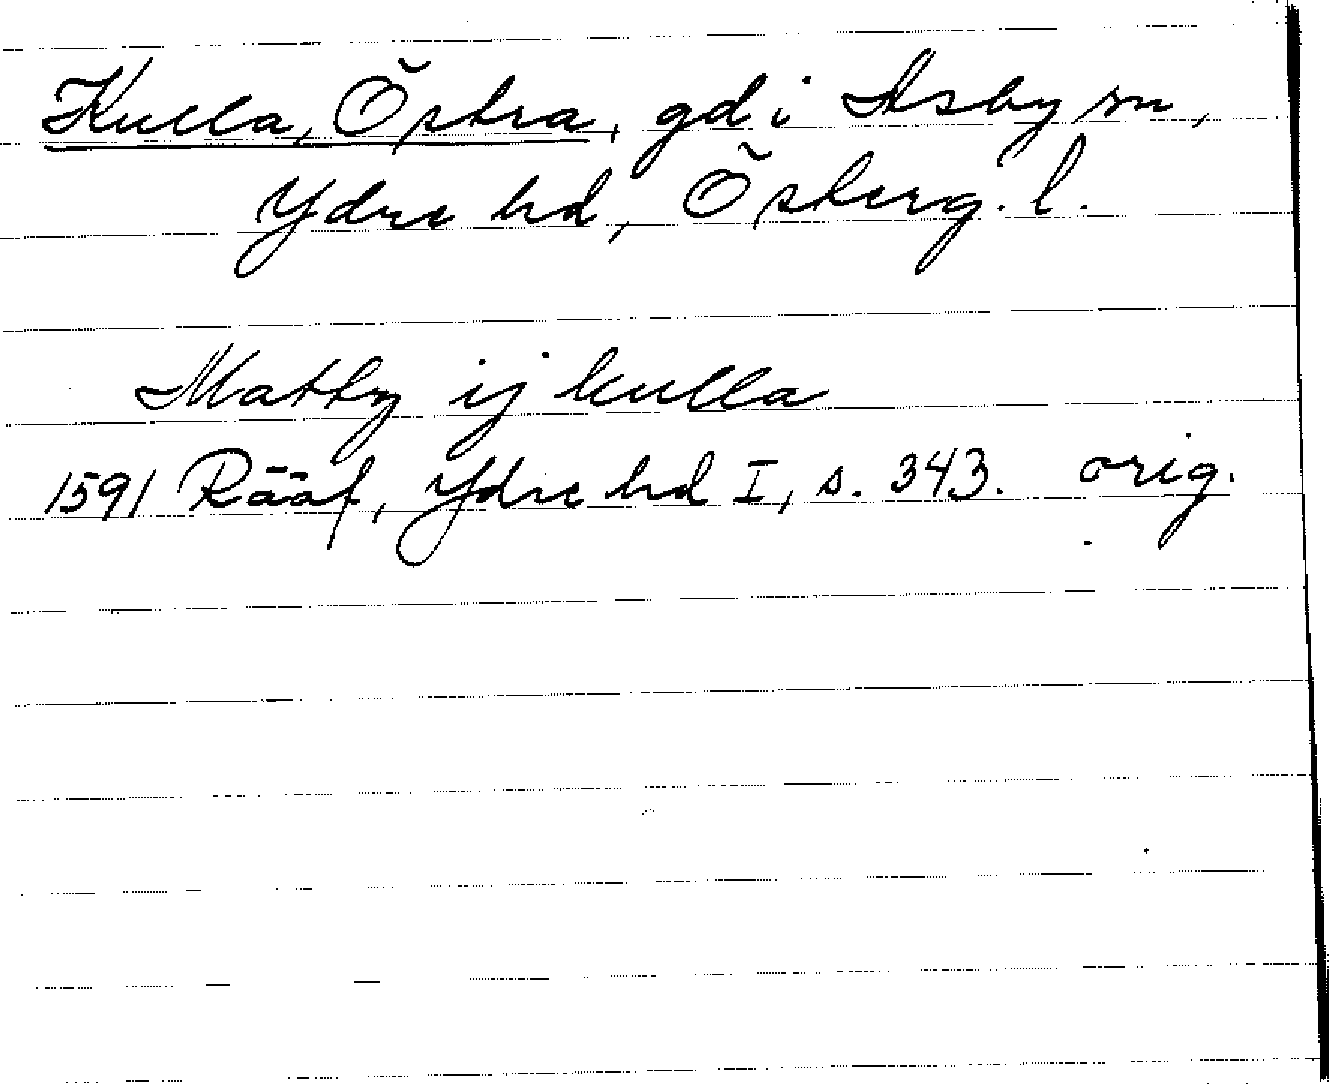 Kulla, Östra, gd i Asby sn,
Ydre hd, Österg. l.
Matty ij kulla
1591 Rääf, Ydre hd I, s. 343. orig.